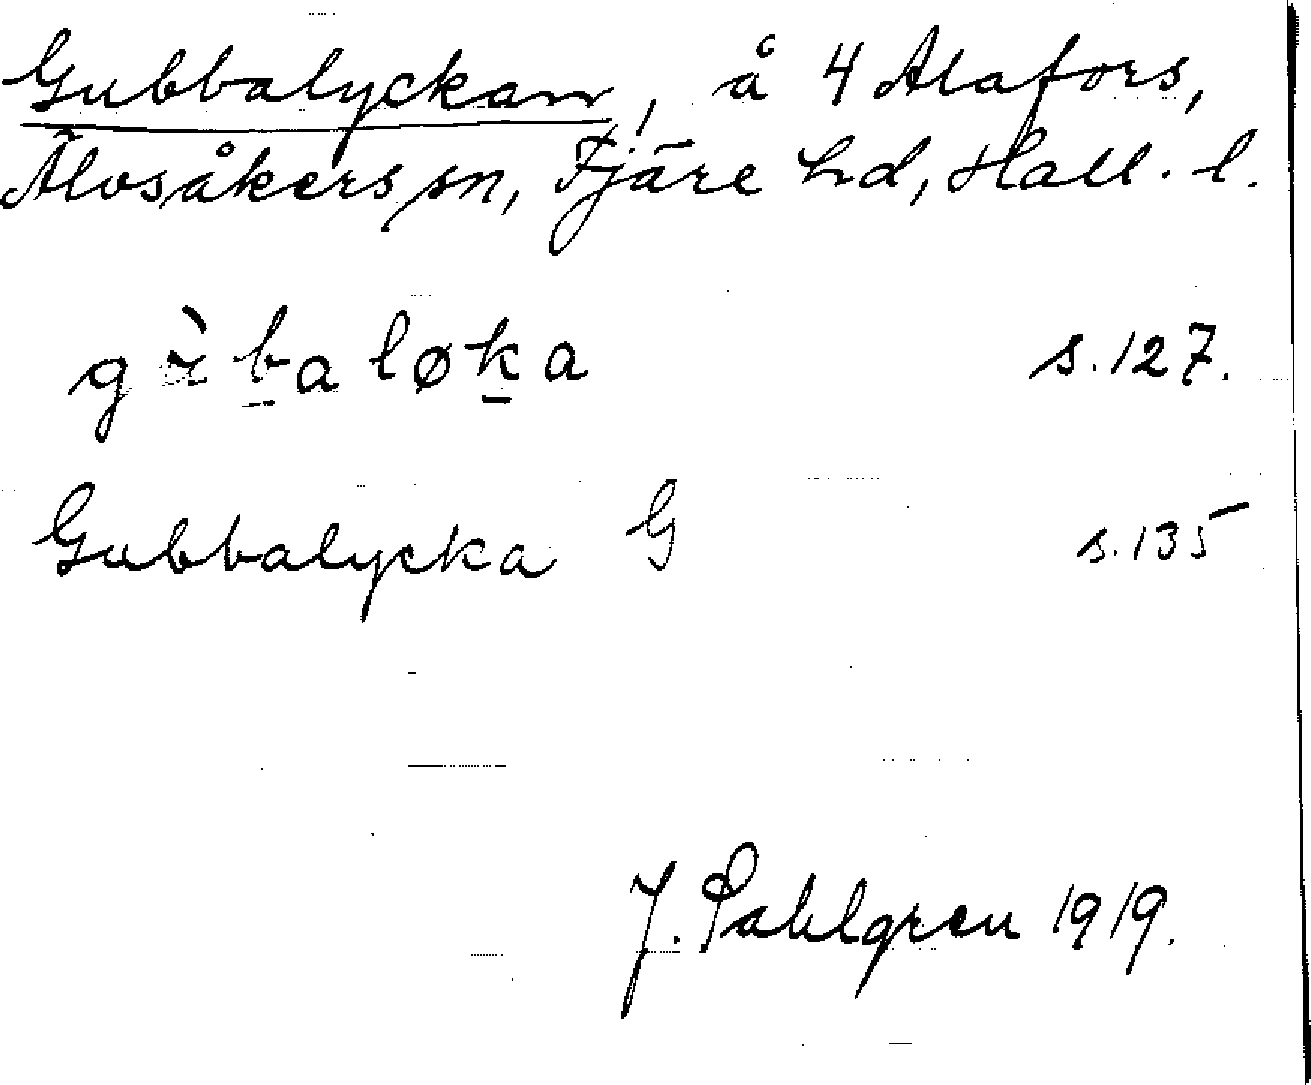 Gubbalyckan, å 4 Alafors,
Älvsåkers sn, Fjäre hd, Hall. l.
s. 127.
Gubbalycka G s. 135
J. Sahlgren 1919.